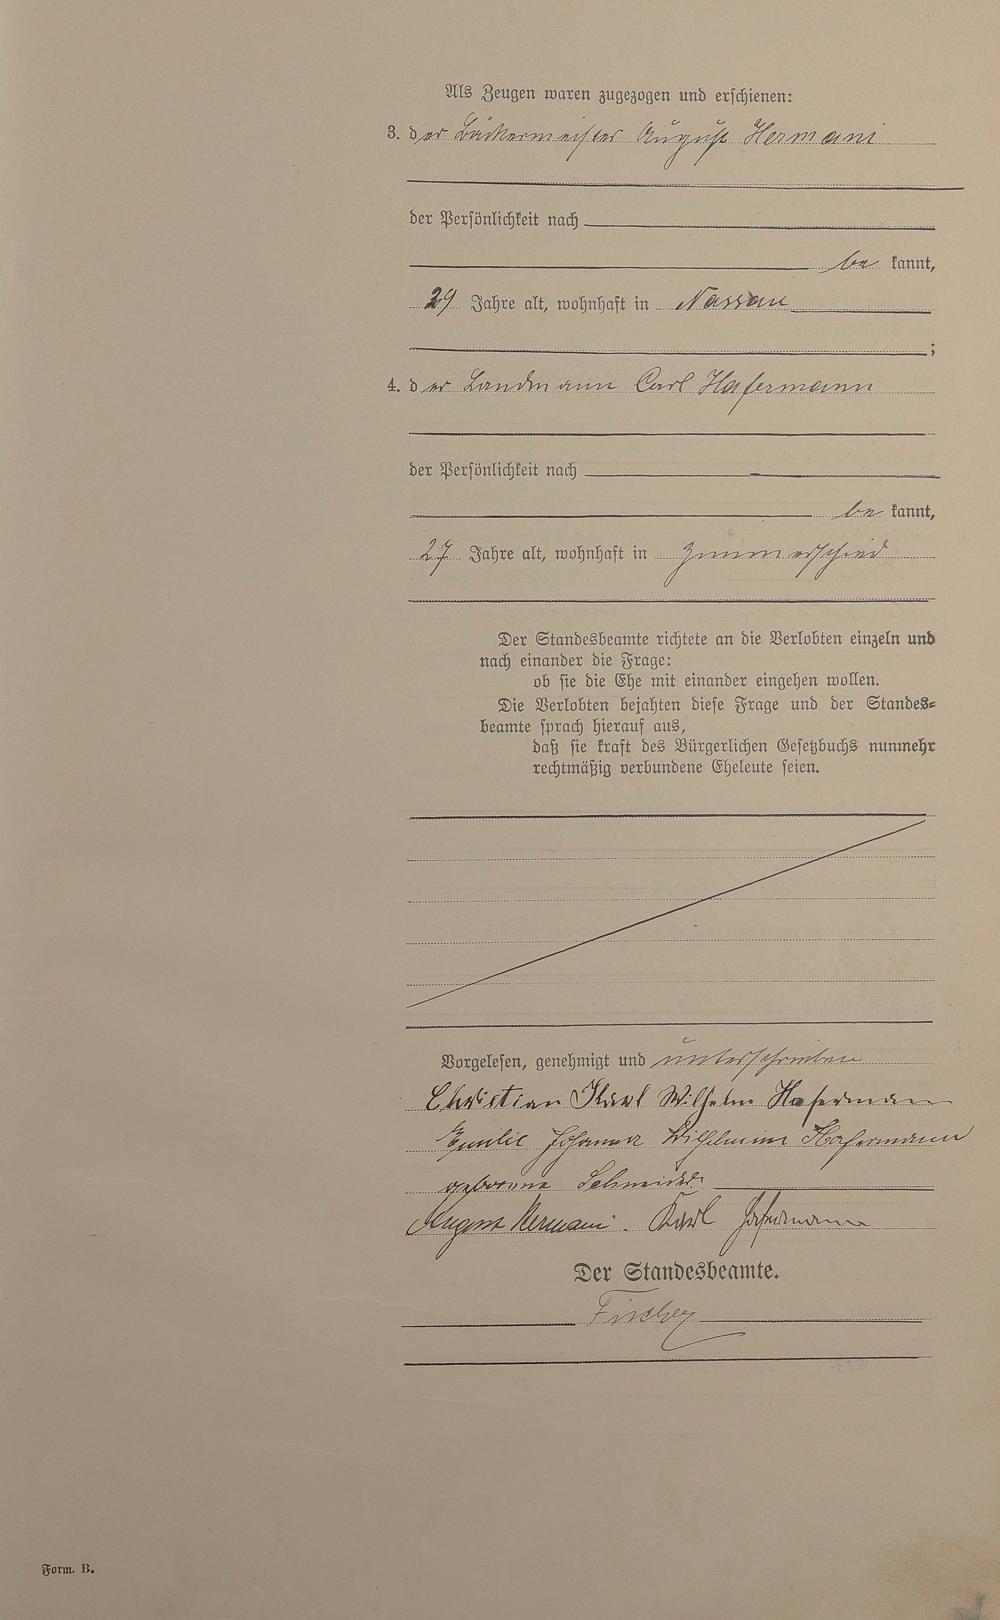 Als Zeugen waren zugezogen und erschienen:
3. der Bäckermeister August Hermani
der Persönlichkeit nach
be kannt,
29 Jahre alt, wohnhaft in Nassau
;
4. der Landmann Carl Hafermann
der Persönlichkeit nach
be kannt,
27 Jahre alt, wohnhaft in Zimmerschied
Der Standesbeamte richtete an die Verlobten einzeln und
nach einander die Frage:
ob sie die Ehe mit einander eingehen wollen.
Die Verlobten bejahten diese Frage und der Standes-
beamte sprach hierauf aus,
daß sie kraft des Bürgerlichen Gesetzbuchs nunmehr
rechtmäßig verbundene Eheleute seien.
Vorgelesen, genehmigt und unterschrieben
Christian Karl Wilhelm Hafermann
Emilie Johanna Wilhelmine Hafermann
geborene Schneider
August Hermani. Karl Hafermann
Der Standesbeamte.
Fischer
Form. B.